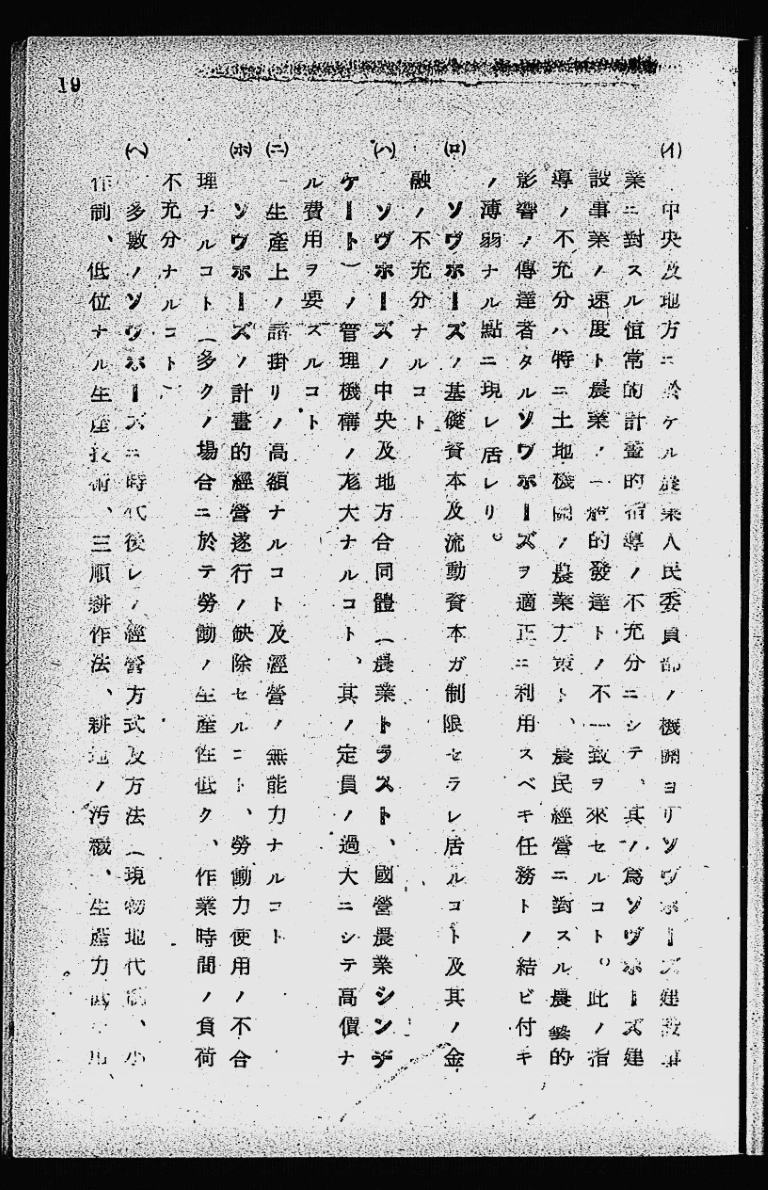 19
(イ) 中央及地方ニ於ケル農業人民委員部ノ機關ヨリソヴホーズ建設事
業ニ對スル恒常的計畫的指導ノ不充分ニシテ、其ノ爲ソヴホーズ建
設事業ノ速度ト農業ノ一般的發達トノ不一致ヲ來セルコト。此ノ指
導ノ不充分ハ特ニ土地機關ノ農業方策ト、農民經營ニ對スル農藝的
影響ノ傳達者タルソヴホーズヲ適正ニ利用スベキ任務トノ結ビ付キ
ノ薄弱ナル點ニ現レ居レリ。
(ロ) ソヴホーズノ基礎資本及流動資本ガ制限セラレ居ルコト及其ノ金
融ノ不充分ナルコト
(ハ) ソヴホーズノ中央及地方合同體(農業トラスト、國營農業シンヂ
ケート)ノ管理機構ノ尨大ナルコト、其ノ定員ノ過大ニシテ高價ナ
ル費用ヲ要スルコト
(ニ) 生產上ノ諸掛リノ高額ナルコト及經營ノ無能力ナルコト
(ホ) ソヴホーズノ計畫的經營遂行ノ缺除セルコト、勞働力使用ノ不合
理ナルコト(多クノ場合ニ於テ勞働ノ生產性低ク、作業時間ノ負荷
不充分ナルコト)
(ヘ) 多數ノソヴホーズニ時代後レノ經營方式及方法(現物地代制、小
作制、低位ナル生產技術、三順耕作法、耕地ノ汚穢、生產力